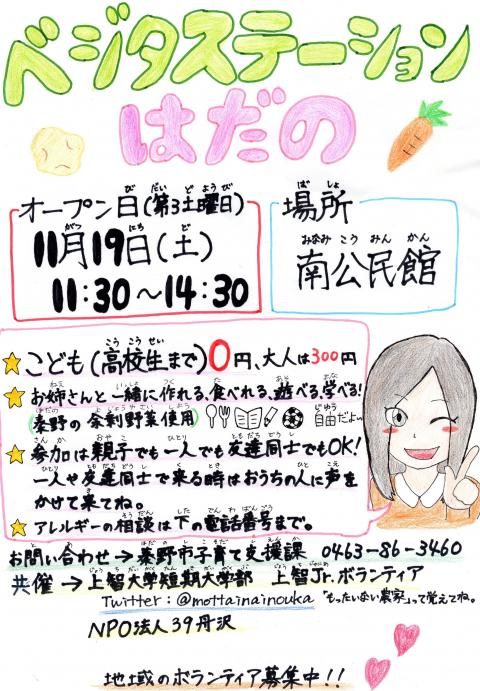 ベジタステーション
はだの
オープン日(第3土曜日)
11月19日(土)
11:30〜14:30
場所
南公民館
こども(高校生まで)0円、大人は300円
お姉さんと一緒に作れる、食べれる、遊べる、学べる!
秦野の余剰野菜使用 自由だよ
参加は親子でも一人でも友達同士でもOK!
一人や友達同士で来る時はおうちの人に声を
かけて来てね。
アレルギーの相談は下の電話番号まで。
お問い合わせ→秦野市子育て支援課 0463-86-3460
共催→上智大学短期大学部 上智Jr.ボランティア
Twitter:@mottainainouka 「もったいない農家」って覚えてね。
NPO法人39丹沢
地域のボランティア募集中!!